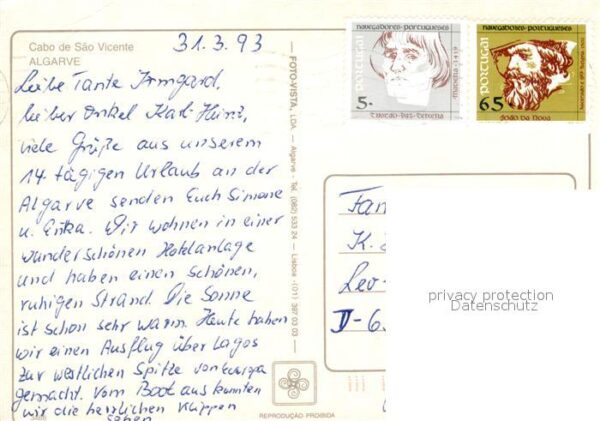 Cabo de São Vicente
ALGARVE
31.3.93
Liebe Tante Irmgard,
lieber Onkel Karl-Heinz,
viele Grüße aus unserem
14-tägigen Urlaub an der
Algarve senden Euch Simone
u. Erika. Wir wohnen in einer
wunderschönen Hotelanlage
und haben einen schönen,
ruhigen Strand. Die Sonne
ist schon sehr warm. Heute haben
wir einen Ausflug über Lagos
zur westlichen Spitze von Europa
gemacht. Vom Boot aus konnten
wir die herrlichen Klippen
sehen
FOTO-VISTA, LDA. — Algarve - Tel. (082) 533 24 — Lisboa - (01) 397 03 03
REPRODUÇÃO PROIBIDA
NAVEGADORES-PORTUGUESES
PORTUGAL
5.-
MADEIRA-1419
NAVEGADORES-PORTUGUESES
PORTUGAL
65.-
JOÃO DA NOVA
Fam
K.
Leo-
D-6
privacy protection
Datenschutz